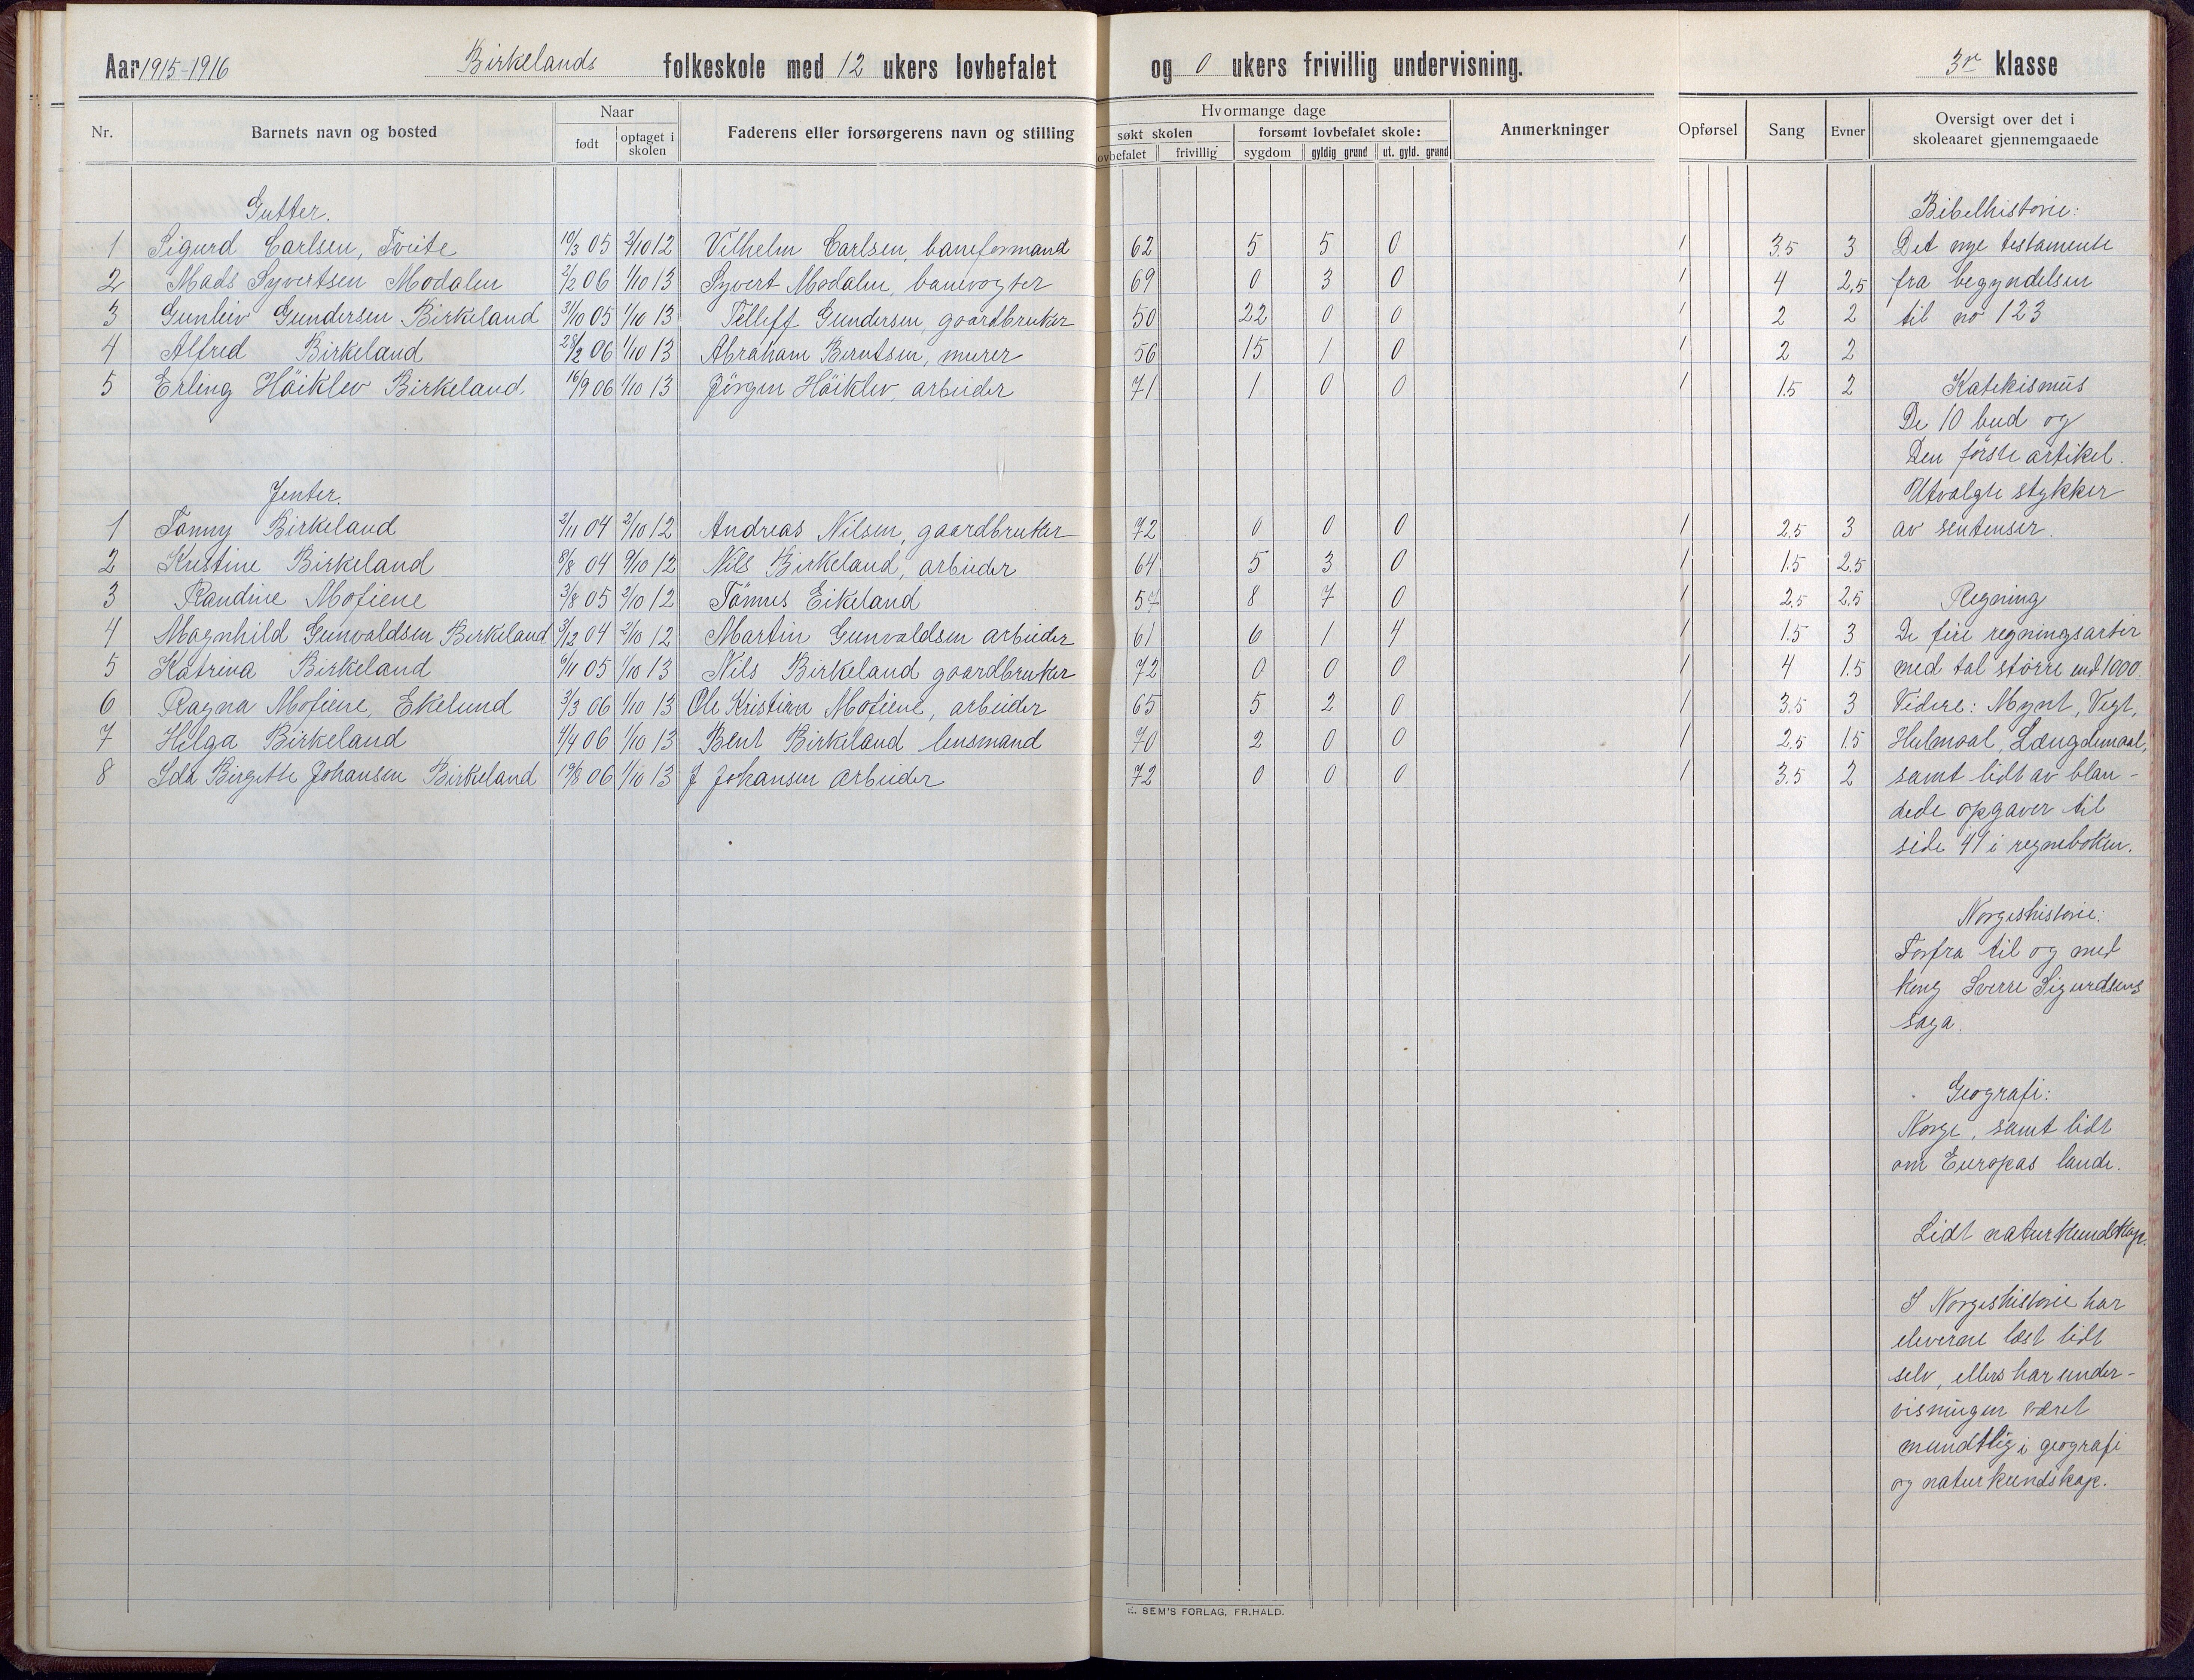 Aar 1915-1916 Birkelands folkeskole med 12 ukers lovbefalet og 0 ukers frivillig undervisning. 3r klasse
Nr. Barnets navn og bosted Naar født optaget i skolen Faderens eller forsørgerens navn og stilling
Hvormange dage
søkt skolen forsømt lovbefalet skole: Anmerkninger Opførsel Sang Evner Oversigt over det i skoleaaret gjennemgaaede
lovbefalet frivillig sygdom gyldig grund ut. gyld. grund
Gutter.
1 Sigurd Carlsen, Tveite 10/3 05 2/10 12 Vilhelm Carlsen, baneformand 62 5 5 0 1 3.5 3
2 Mads Syvertsen Modalen 2/2 06 1/10 13 Syvert Modalen, banevogter 69 0 3 0 1 4 2.5
3 Gunleiv Gundersen Birkeland 31/10 05 1/10 13 Telleff Gundersen, gaardbruker 50 22 0 0 1 2 2
4 Alfred Birkeland 28/2 06 1/10 13 Abraham Berntsen, murer 56 15 1 0 1 2 2
5 Erling Höiklev Birkeland. 16/9 06 1/10 13 Jörgen Höiklev, arbeider 71 1 0 0 1 1.5 2
Jenter.
1 Tanny Birkeland 2/11 04 2/10 12 Andreas Nilsen, gaardbruker 72 0 0 0 1 2.5 3
2 Kristine Birkeland 8/8 04 9/10 12 Nils Birkeland, arbeider 64 5 3 0 1 1.5 2.5
3 Randine Mofiene 3/8 05 2/10 12 Tömus Eikeland 57 8 7 0 1 2.5 2.5
4 Magnhild Gunvaldsen Birkeland 3/12 04 2/10 12 Martin Gunvaldsen arbeider 61 6 1 4 1 1.5 3
5 Katrina Birkeland 6/11 05 1/10 13 Nils Birkeland gaardbruker 72 0 0 0 1 4 1.5
6 Ragna Mofiene, Ekelund 3/3 06 1/10 13 Ole Kristian Mofiene, arbeider 65 5 2 0 1 3.5 3
7 Helga Birkeland 1/4 06 1/10 13 Bent Birkeland lensmand 70 2 0 0 1 2.5 1.5
8 Ida Birgitte Johansen Birkeland 19/8 06 1/10 13 J Johansen arbeider 72 0 0 0 1 3.5 2
Bibelhistorie:
Det nye testamente
fra begyndelsen
til no 123
Katekismus
De 10 bud og
Den förste artikel.
Utvalgte stykker
av sentenser.
Regning
De fire regningsarter
med tal större end 1000.
Videre: Mynt, Vegt,
Hulmaal, Længdemaal,
samt lidt av blan-
dede opgaver til
side 41 i regneboken.
Norgeshistorie:
Forfra til og med
kong Sverre Sigurdsens
saga.
Geografi:
Norge, samt lidt
om Europas lande.
Lidt naturkundskap.
I Norgeshistorie har
eleverne læst lidt
selv, ellers har under-
visningen været
mundtlig i geografi
og naturkundskap.
E. SEM'S FORLAG, FR.HALD.